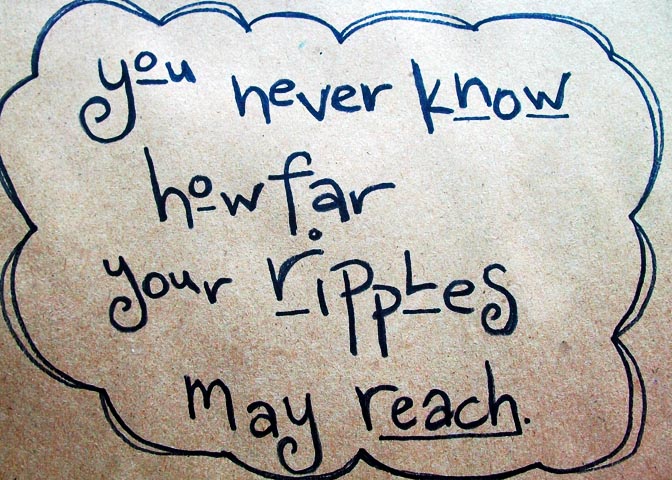 you never know
how far
your ripples
may reach.